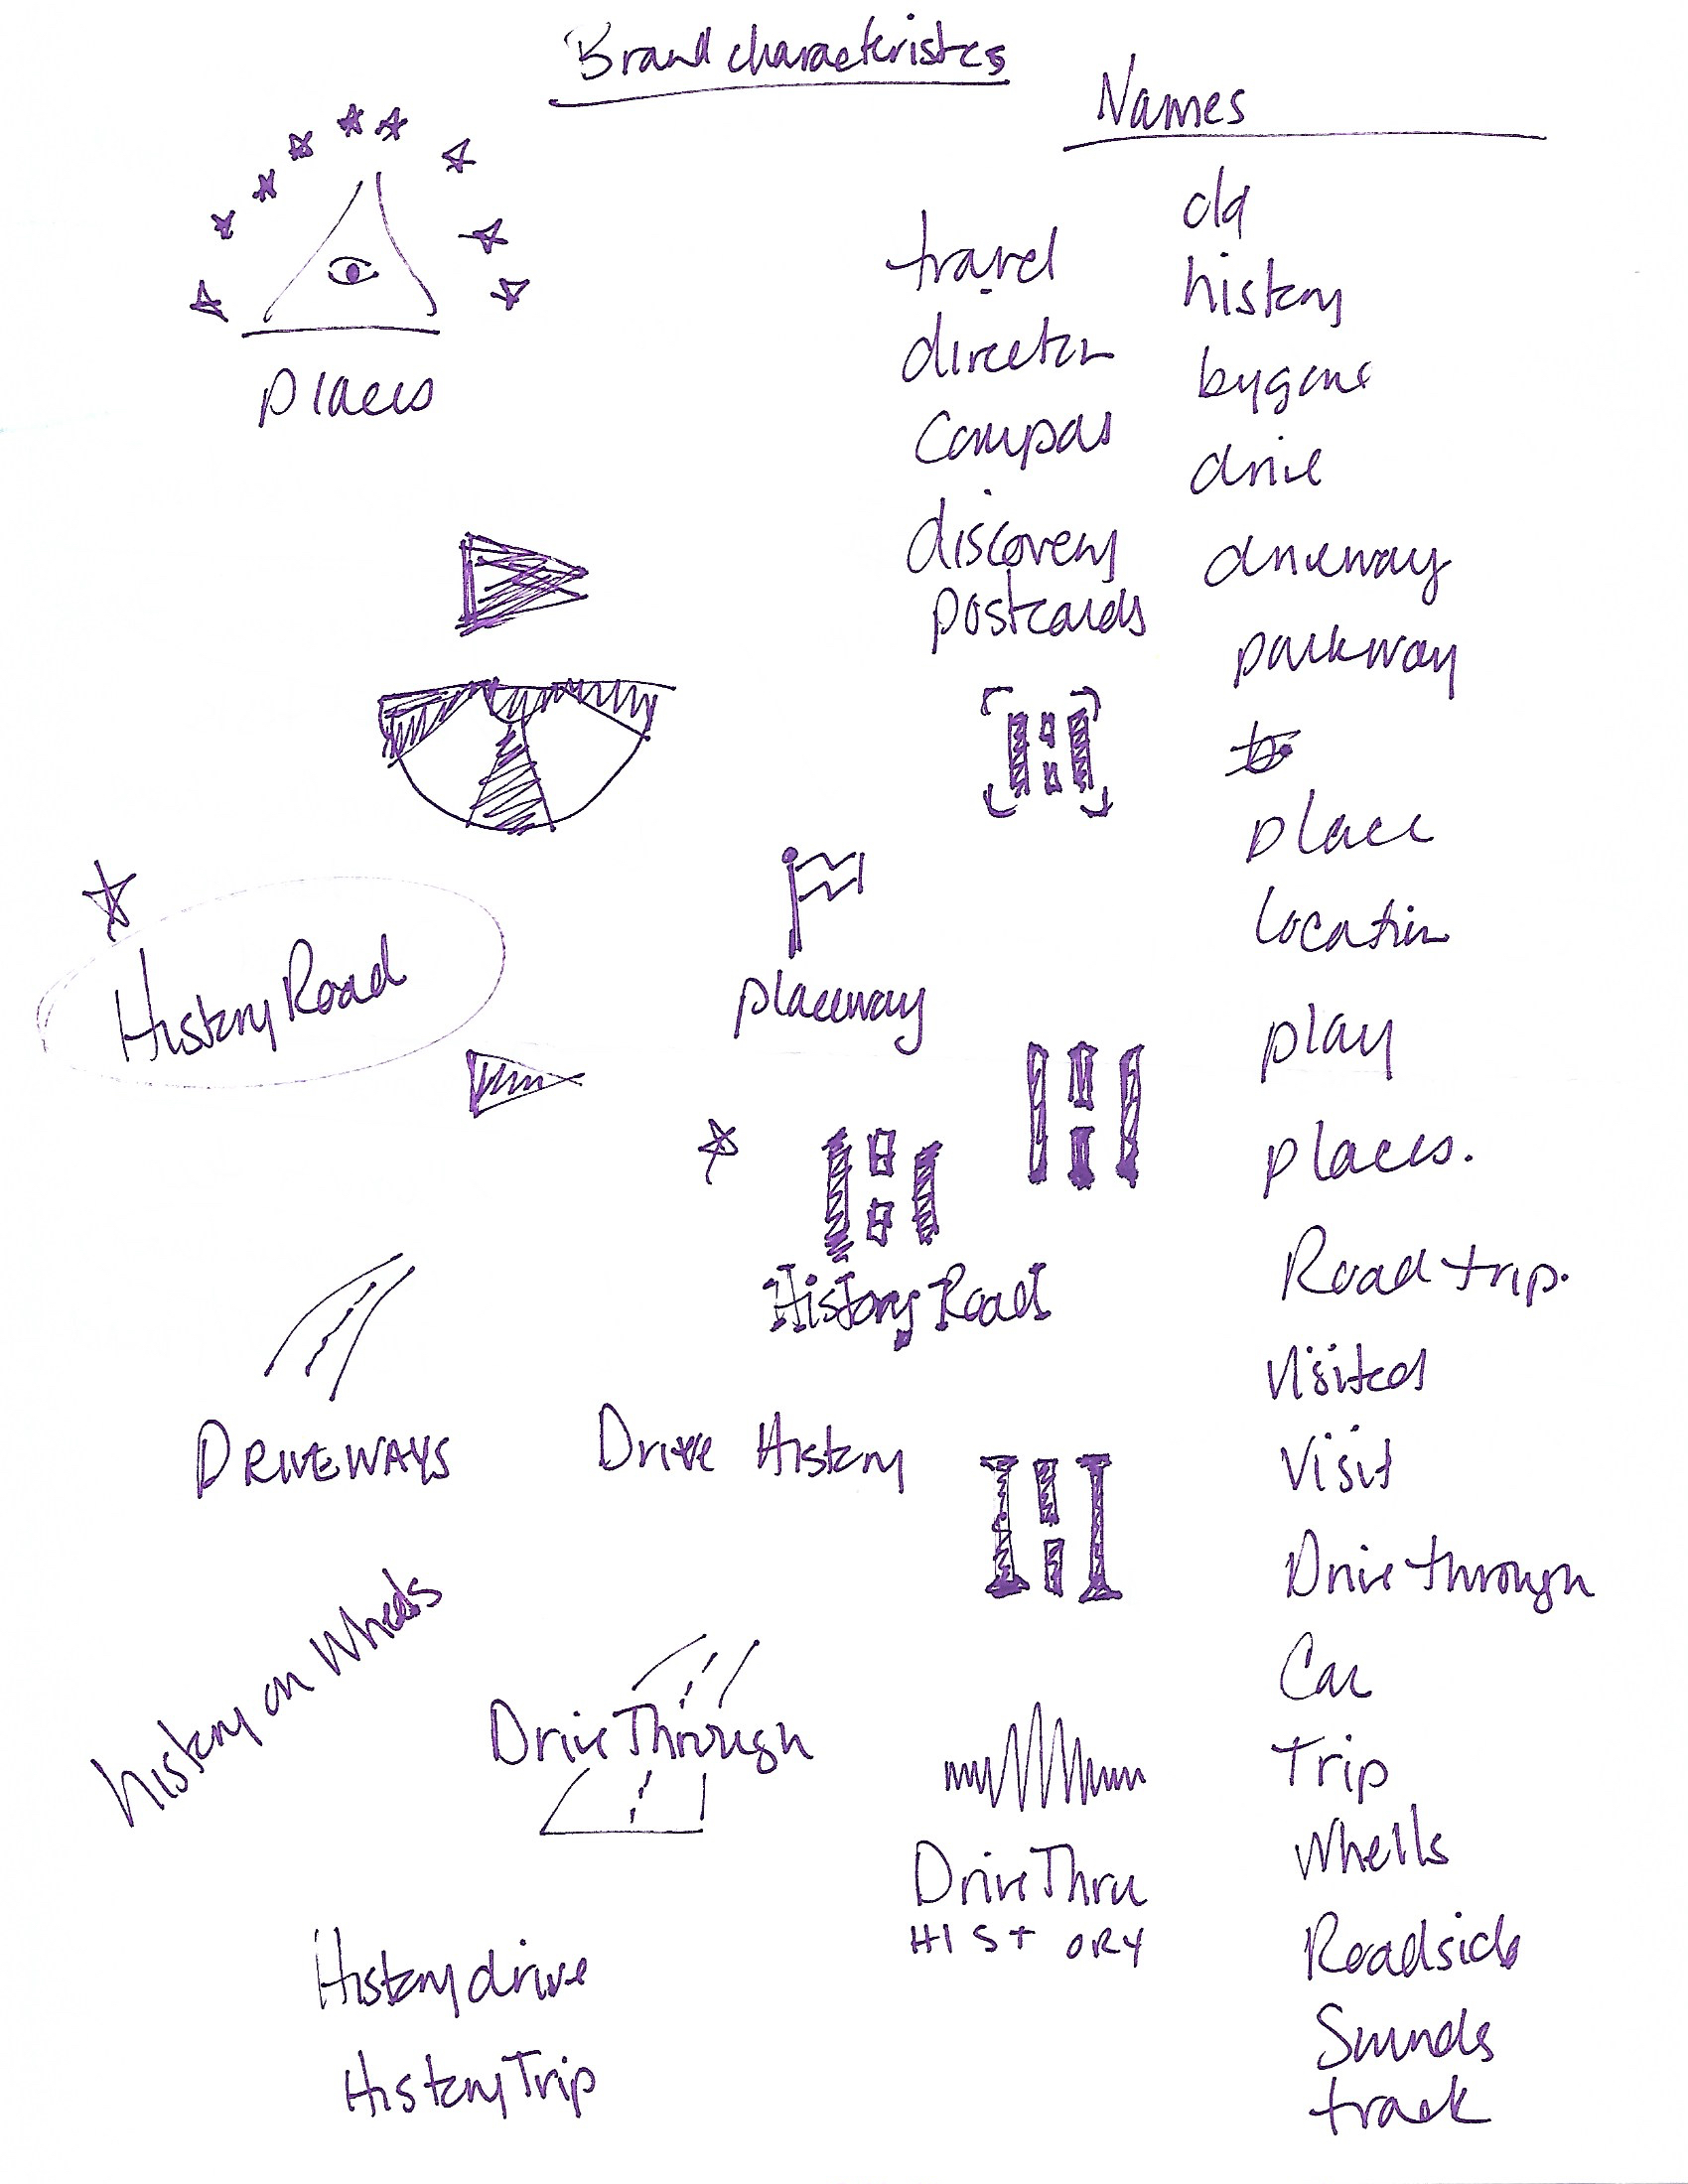 Brand characteristics
Names
places
travel
director
compas
discovery
postcards
old
history
bygone
drive
driveway
parkway
place
location
play
places.
Road trip.
visited
visit
Drive through
Car
Trip
Whells
Roadside
Sounds
track
HistoryRoad
placeway
History Road
DRIVEWAYS
Drive History
history on wheels
Drive Through
DriveThru
HIST ORY
Historydrive
HistoryTrip